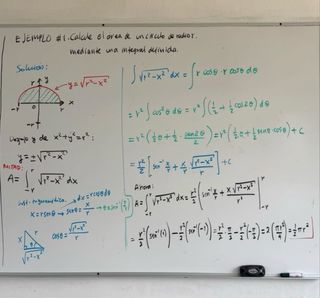 EJEMPLO #1. Calcule el área de un círculo de radio r.
mediante una integral definida.
Solución:
y
r
y = √(r²-x²)
-r
r
x
-r
Despeje y de x²+y²=r²:
y=±√(r²-x²)
A=∫_{-r}^{r} √(r²-x²) dx
sust. trigonométrica: dx=r cosθ dθ
x=r senθ → senθ = x/r → θ=sin⁻¹(x/r)
r
x
θ
√(r²-x²)
cosθ = √(r²-x²)/r
∫√(r²-x²) dx = ∫ r cosθ · r cosθ dθ
= r² ∫cos²θ dθ = r² ∫(1/2 + 1/2 cos2θ) dθ
= r² (1/2 θ + 1/2 · sen2θ/2) = r² (1/2 θ + 1/2 senθ·cosθ) + C
= r²/2 [sin⁻¹ x/r + x/r · √(r²-x²)/r] + C
Ahora:
A = ∫_{-r}^{r} √(r²-x²) dx = r²/2 [sin⁻¹ x/r + x√(r²-x²)/r²] |_{-r}^{r}
= r²/2 (sin⁻¹(1)) - r²/2 (sin⁻¹(-1)) = r²/2 · π/2 - r²/2 (-π/2) = 2(πr²/4) = 1/2 πr²